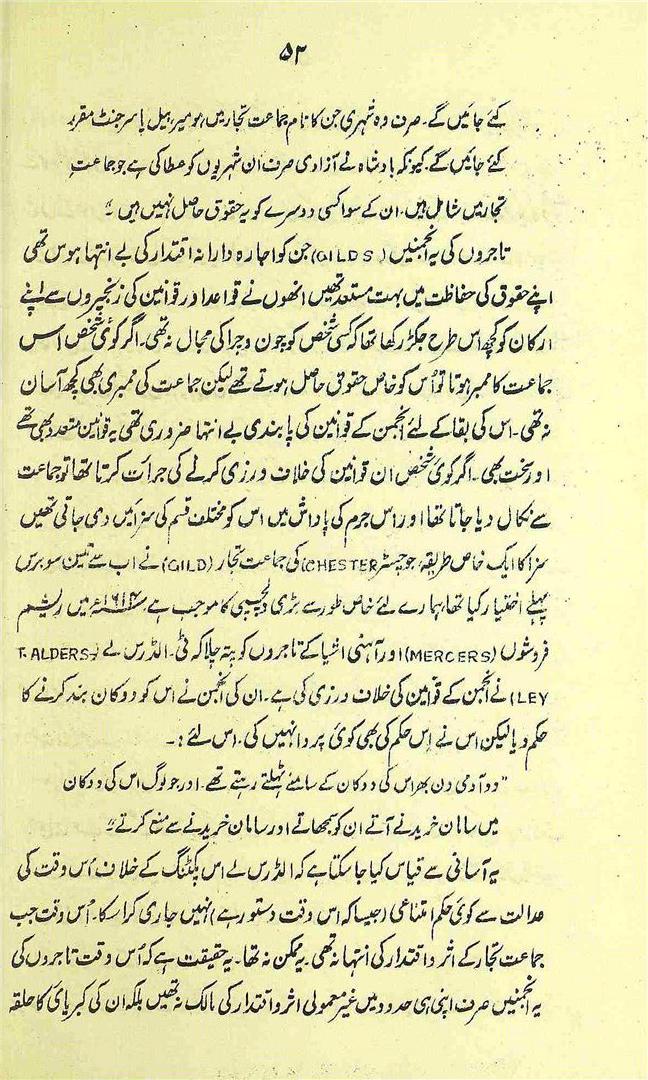 ۵۲
کئے جائیں گے۔ صرف وہ شہری جن کا نام جماعت تجار میں ہو میر، بیل یا سرجنٹ مقرر
کئے جائیں گے۔ کیونکہ بادشاہ نے آزادی صرف اُن شہریوں کو عطا کی ہے جو جماعتِ
تجار میں شامل ہیں۔ ان کے سوا کسی دوسرے کو یہ حقوق حاصل نہیں ہیں۔"
تاجروں کی یہ انجمنیں (GILDS) جن کو اجارہ دارانہ اقتدار کی بے انتہا ہوس تھی
اپنے حقوق کی حفاظت میں بہت مستعد تھیں انھوں نے قواعد اور قوانین کی زنجیروں سے اپنے
ارکان کو کچھ اس طرح جکڑ رکھا تھا کہ کسی شخص کو چون و چرا کی مجال نہ تھی۔ اگر کوئی شخص اس
جماعت کا ممبر ہوتا تو اُس کو خاص حقوق حاصل ہوتے تھے لیکن جماعت کی ممبری بھی کچھ آسان
نہ تھی۔ اس کی بقا کے لئے انجمن کے قوانین کی پابندی بے انتہا ضروری تھی یہ قوانین متعدد بھی تھے
اور سخت بھی۔ اگر کوئی شخص ان قوانین کی خلاف ورزی کرنے کی جرأت کرتا تھا تو جماعت
سے نکال دیا جاتا تھا اور اس جرم کی پاداش میں اس کو مختلف قسم کی سزائیں دی جاتی تھیں
سزا کا ایک خاص طریقہ، جو چسٹر (CHESTER) کی جماعت تجار (GILD) نے اب سے تین سو برس
پہلے اختیار کیا تھا، ہمارے لئے خاص طور سے بڑی دلچسپی کا موجب ہے ۱۶۱۴ء میں ریشم
فروشوں (MERCERS) اور آہنی اشیا کے تاجروں کو پتہ چلا کہ ٹی۔ الڈرس لے (T. ALDERS-
LEY) نے انجمن کے قوانین کی خلاف ورزی کی ہے۔ ان کی انجمن نے اس کو دوکان بند کرنے کا
حکم دیا لیکن اس نے اِس حکم کی بھی کوئی پروا نہیں کی۔ اس لئے:۔
"دو آدمی دن بھر اس کی دوکان کے سامنے ٹہلتے رہتے تھے۔ اور جو لوگ اس کی دوکان
میں سامان خریدنے آتے ان کو سمجھاتے اور سامان خریدنے سے منع کرتے"
یہ آسانی سے قیاس کیا جا سکتا ہے کہ الڈرس لے اس پکٹنگ کے خلاف اُس وقت کی
عدالت سے کوئی حکم امتناعی (جیسا کہ اس وقت دستور ہے) نہیں جاری کرا سکا۔ اُس وقت جب
جماعت تجار کے اثر و اقتدار کی انتہا نہ تھی۔ یہ ممکن نہ تھا۔ یہ حقیقت ہے کہ اُس وقت تاجروں کی
یہ انجمنیں صرف اپنی ہی حدود میں غیر معمولی اثر و اقتدار کی مالک نہ تھیں بلکہ ان کی کبریائی کا حلقہ